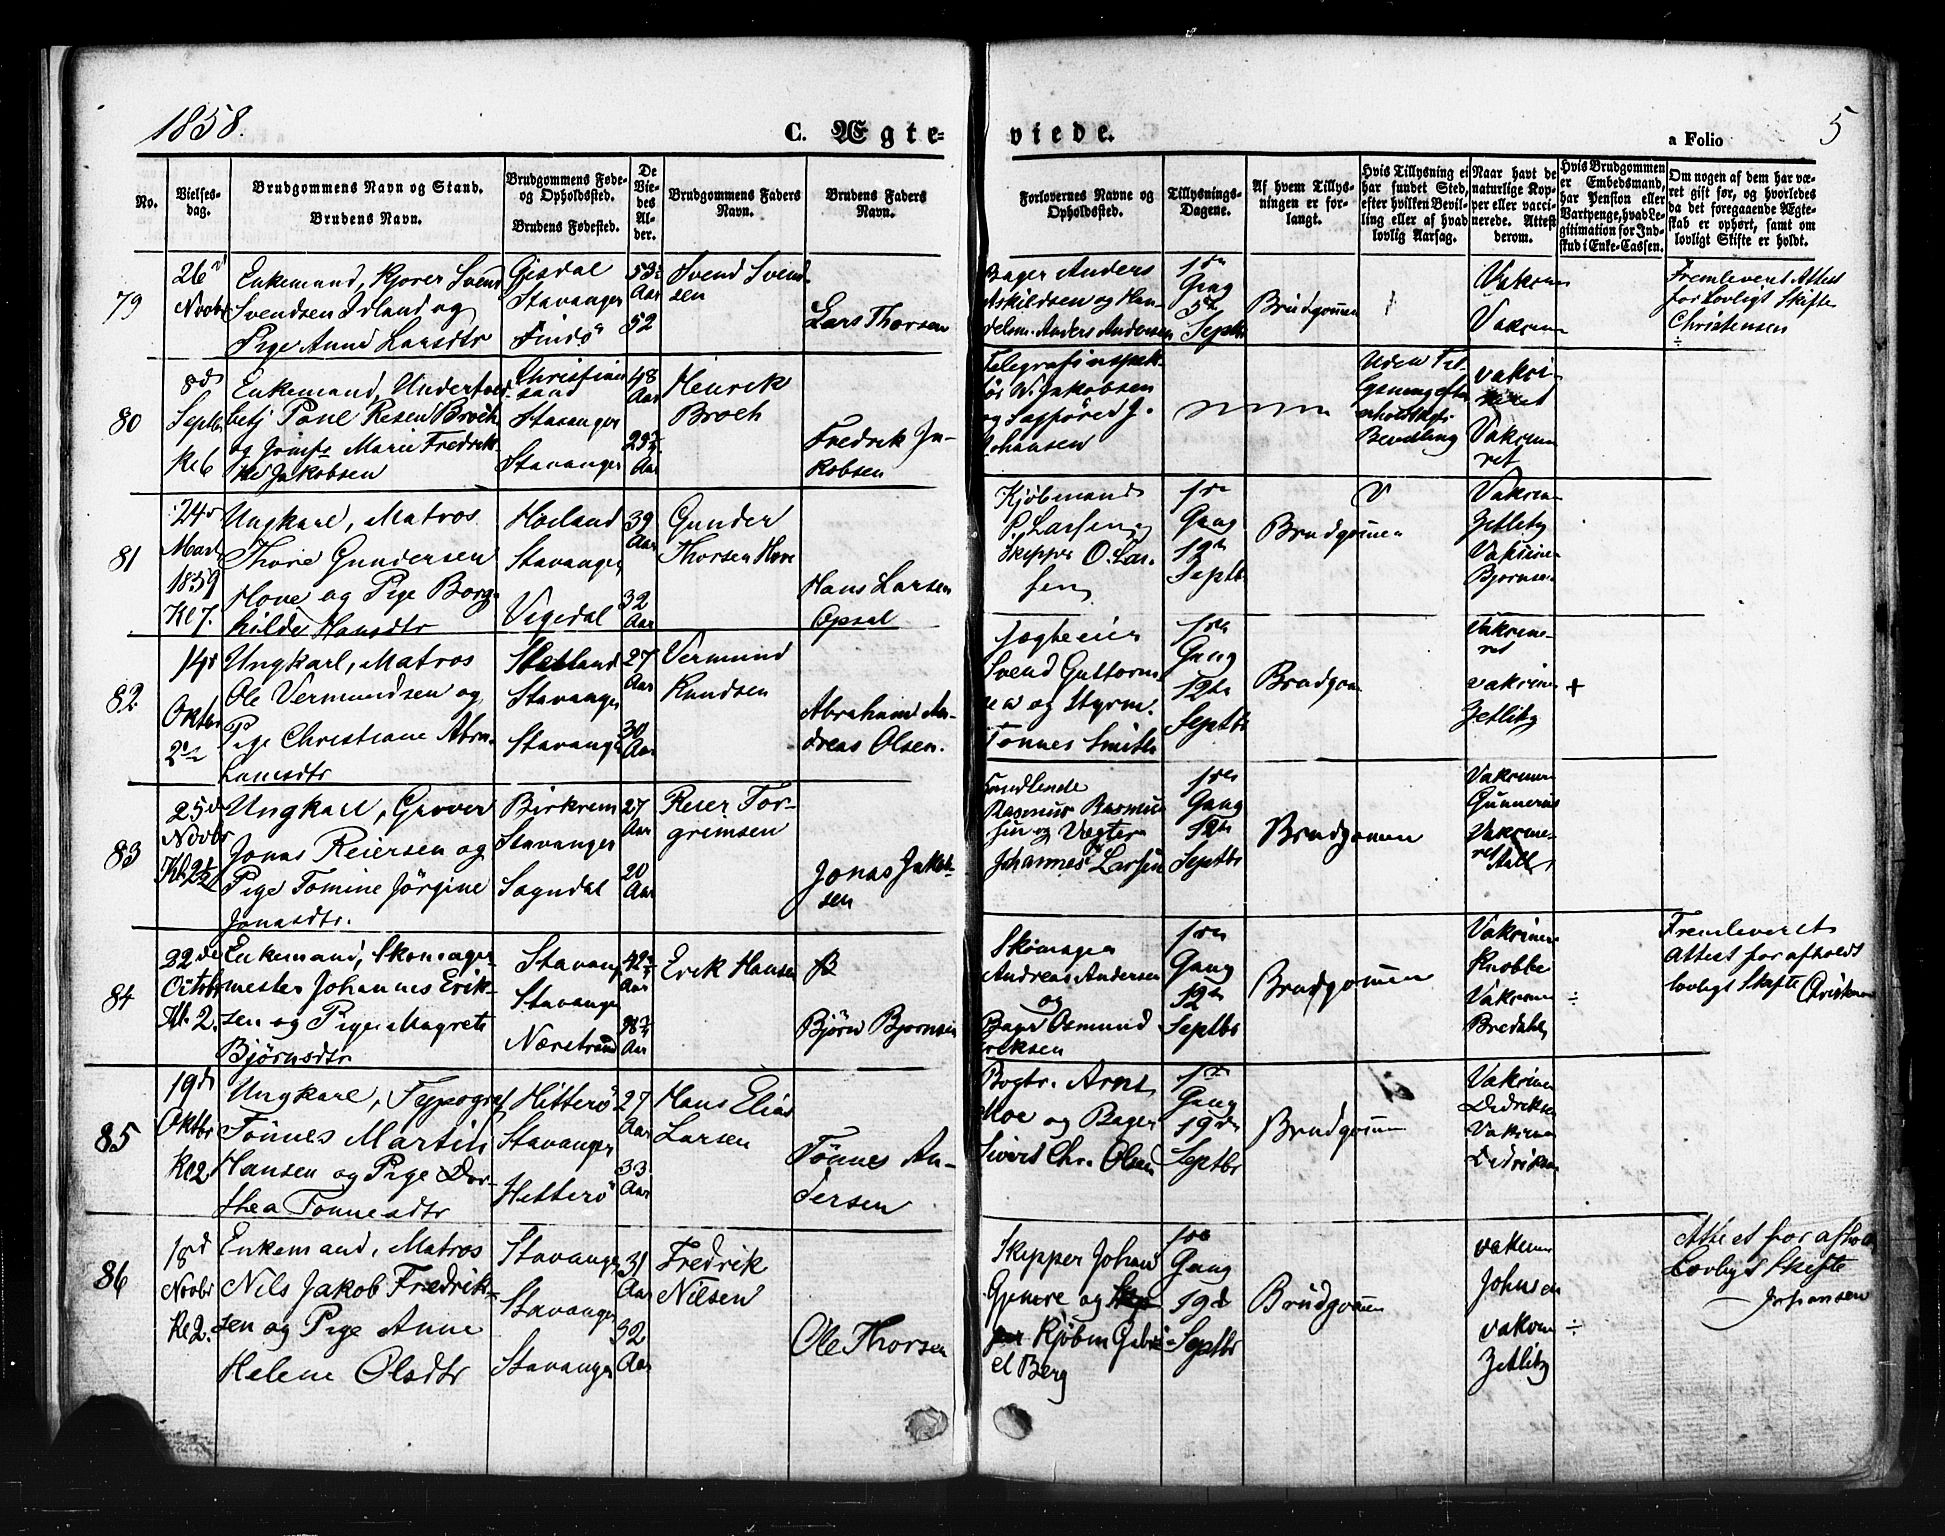 1858.
C. Ægteviede.
a Folio
5
No.
Vielsesdag.
Brudgommens Navn og Stand.
Brudens Navn.
Brudgommens Føde- og Opholdssted.
Brudens Fødested.
De Viedes Alder.
Brudgommens Faders Navn.
Brudens Faders Navn.
Forlovernes Navne og Opholdssted.
Tillysnings-Dagene.
Af hvem Tillysningen er forlangt.
Hvis Tillysning ei har fundet Sted, efter hvilken Bevilling eller af hvad lovlig Aarsag.
Naar havt de naturlige Kopper eller vaccinerede. Attest derom.
Hvis Brudgommen er Embedsmand, har Pension eller Vartpenge, hvad Legitimation for Indskud i Enke-Cassen.
Om nogen af dem har været gift før, og hvorledes da det foregaaende Ægteskab er ophørt, samt om lovligt Skifte er holdt.
79
26
Novbr
Enkemand, Kjører Svend
Svendsen Irland og
Pige Anna Larsdtr
Gjesdal
Stavanger
Findö
53
Aar
52
Svend Svend-
sen
Lars Thorsen
Bager Anders
Askildsen og Han-
delsm. Anders Andersen
1ste
Gang
5te
Septb
Brudgomen
Vakcin
Vakcin
Fremleveret Attest
for Lovligt Skifte
Christensen
80
8de
Septbr
Kl 6
Enkemand,
Poul Resen Broch
og Jomfr Marie Fredrik-
ke Jakobsen
Christian
sand
Stavanger
Stavanger
48
Aar
Aar
Henrik
Broch
Fredrik Ja-
kobsen
Telegrafinspek-
tör W. Jakobsen
og
Johansen
Uden
Bevilling
vakci-
neret
Vakcine
ret
81
24
Mart
1859
Kl 7.
Ungkarl, Matros
Thore Gundersen
Hove og Pige Borg-
hilde Hansdtr
Høiland
Stavanger
Vigedal
39
Aar
32
Aar
Gunder
Thorsen Hove
Hans Larsen
Opsal
Kjöbmand
P. Larsen og
Skipper O. Lar-
sen
1ste
Gang
12te
Septb
Brudgomen
Vakcin
Zetlitz
Vakcine
Bjørnsen
82
14
Oktbr
Ungkarl, Matros
Ole Vermundsen og
Pige Christiane Abra-
hamsdtr
Stavanger
Stavanger
27
Aar
30
Aar
Vermund
Knudsen
Abraham An-
dreas Olsen.
Jægteeier
Svend Guttorm-
sen og Styrm.
Tönnes Smith
1ste
Gang
12te
Septbr
Brudgom
Vakcine-
ret
vakcine
Zetlitz
+
83
25de
Novbr
Kl 2½
Ungkarl, Graver
Jonas Reiersen og
Pige Tomine Jörgine
Jonasdtr.
Birkrem
Stavanger
Sogndal
27
Aar
20
Aar
Reier Tor-
grimsen
Jonas Jakob-
sen
Handlende
Rasmus Rasmus-
sen og Vægter
Johannes Larsen
1ste
Gang
12te
Septbr
Brudgomen
Vakcinen
Gunnerus
Vakcine-
ret
84
22de
Octobr
Kl. 2.
Enkemand, Skomager-
mester Johannes Erik-
sen og Pige Magrete
Björnsdtr
Stavang
Stavanger
Nærstrand
42
Aar
Aar
Erik Hansen
Björn Bjornsen
Skomager
Andreas Andersen
og
Bager Osmund
Eriksen
1ste
Gang
12te
Septbr
Brudgomen
Vakcinen
Knobbe
Vakcine
Bredahl
÷
Fremleveret
Attest for afholdt
lovligt Skifte Christensen
85
19de
Oktbr
Kl 2
Ungkarl, Typograf
Tönnes Martin
Hansen og Pige Dor-
thea Tönnesdtr
Hitterö
Stavanger
Hitterö
27
Aar
33
Aar
Hans Elias
Larsen
Tönnes An-
dersen
Bogtr. Arnt
Moe og Bager
Sivert Chr. Olsen
1ste
Gang
19de
Septbr
Brudgomen
Vakcine
Didriksen
Vakcine
Didriksen
86
18d
Novbr
Kl 2.
Enkemand, Matros
Nils Jakob Fredrik-
sen og Pige Anne
Helene Olsdtr
Stavanger
Stavanger
Stavanger
31
Aar
32
Aar
Fredrik
Nilsen
Ole Thorsen
Skipper Johan
Gjemre og
Kjöbm Gabri-
el Berg
1ste
Gang
19d
Septbr
Brudgomen
vakcin
Johnsen
vakcin
Zetlitz
÷
Attest for afholdt
Lovligt Skifte
Johansen